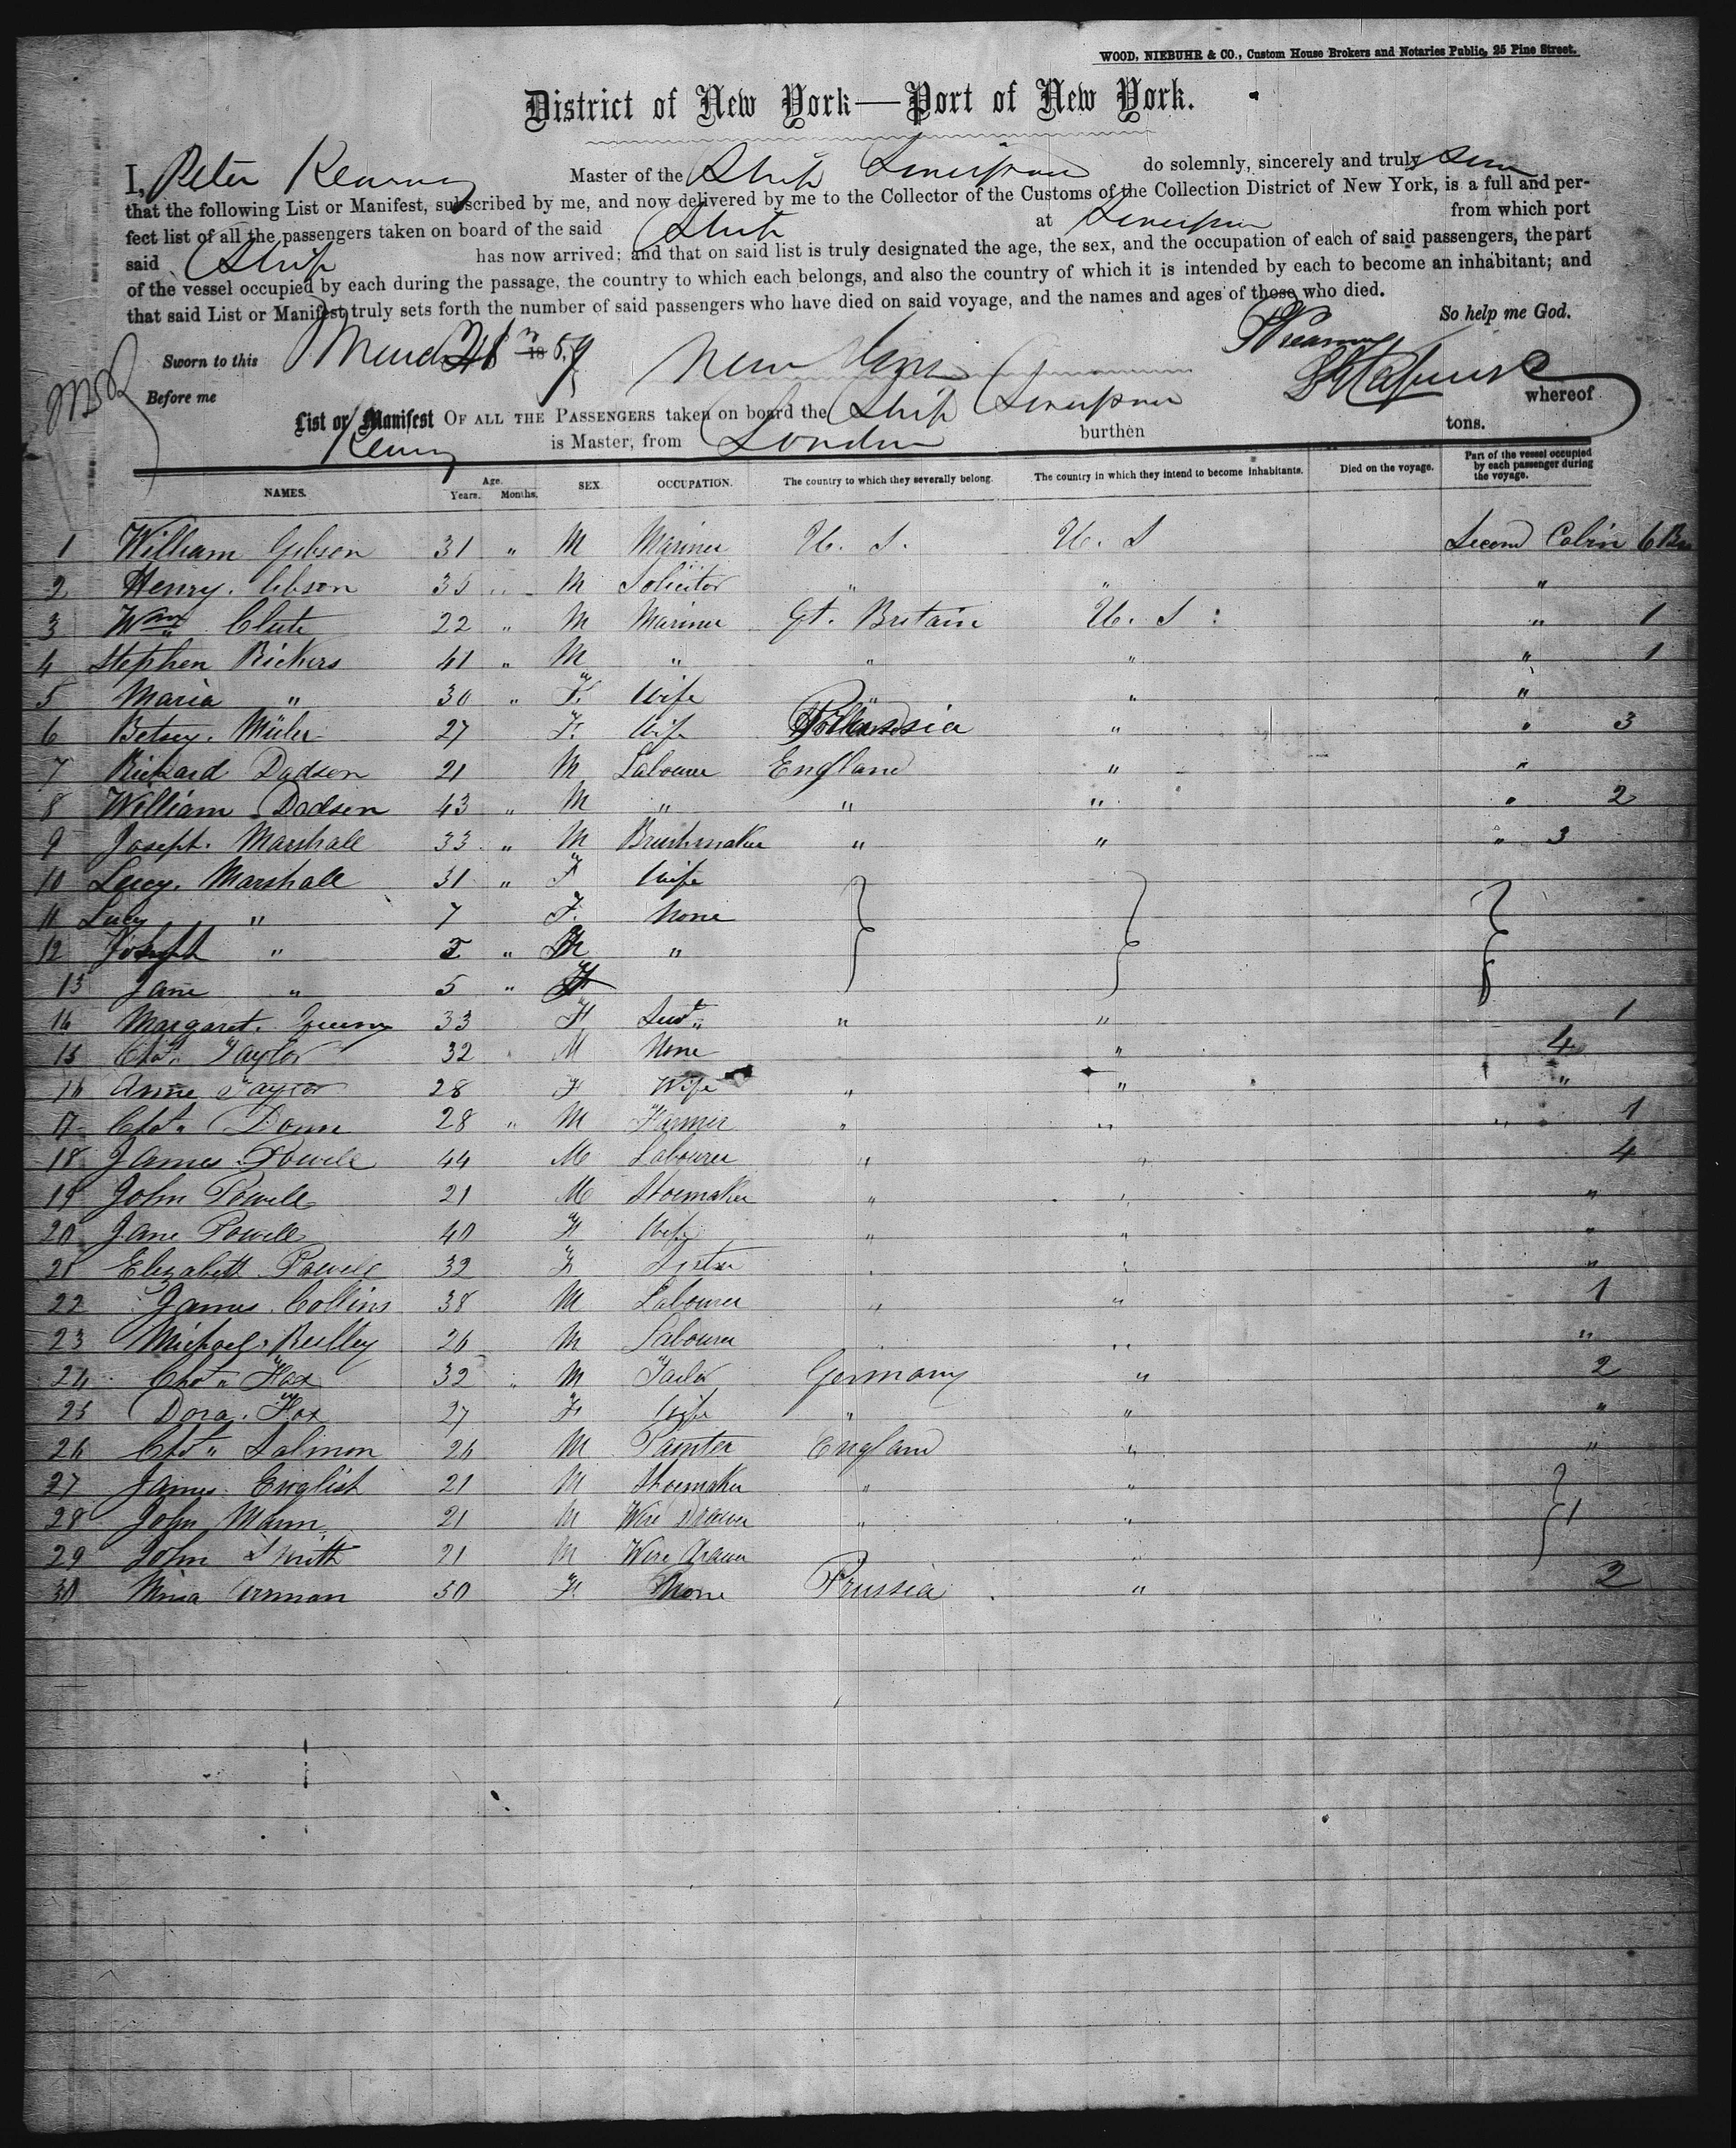 WOOD, NIEBUHR & CO., Custom House Brokers and Notaries Public, 25 Pine Street.
District of New York—Port of New York.
I, Peter Kearney Master of the Ship Liverpool do solemnly, sincerely and truly
that the following List or Manifest, subscribed by me, and now delivered by me to the Collector of the Customs of the Collection District of New York, is a full and per-
fect list of all the passengers taken on board of the said Ship at Liverpool from which port
said Ship has now arrived; and that on said list is truly designated the age, the sex, and the occupation of each of said passengers, the part
of the vessel occupied by each during the passage, the country to which each belongs, and also the country of which it is intended by each to become an inhabitant; and
that said List or Manifest truly sets forth the number of said passengers who have died on said voyage, and the names and ages of those who died.
So help me God.
Sworn to this March 1859
Before me
List or Manifest OF ALL THE PASSENGERS taken on board the Ship Liverpool whereof
is Master, from London burthen tons.
NAMES. Age. Years. Months. SEX OCCUPATION. The country to which they severally belong. The country in which they intend to become inhabitants. Died on the voyage. Part of the vessel occupied by each passenger during the voyage.
1 William Gibson 31 " M Mariner U. S. U. S Second Cabin 6
2 Henry M Solicitor " " "
3 Wm Clute 22 " M Mariner Gt. Britain U. S : " 1
4 Stephen Rickers 41 " M " " " " 1
5 Maria " 30 " F. Wife " " "
6 Betsey. Müler 27 F. Wife " " 3
7 Richard Dadson 21 M Labourer England " "
8 William Dadson 43 " M " " " " 2
9 Joseph. Marshall 33 " M Brushmaker " " " 3
10 Lucy. Marshall 31 " F Wife
11 Lucy " 7 F. None
12 Joseph " " M "
13 Jane " 5 " F
Margaret. 33 F " " 1
15 Chas. Taylor 32 M None " 4
16 Anne Taylor 28 F Wife " " "
17 Chas. 28 " M Farmer " " " 1
18 James Powell 44 M Labourer " " 4
19 John Powell 21 M Shoemaker " " "
20 Jane Powell 40 F Wife " " "
21 Elizabeth Powell 32 F Sister " " "
22 James. Collins 38 M Labourer " " 1
23 Michael 26 M Labourer " " "
24 Chas. Fox 32 " M Tailor Germany " 2
25 Dora. Fox 27 F Wife " " "
26 Chas. Salmon 26 M Painter England " "
27 James. English 21 M Shoemaker " "
28 John Mann 21 M Wire Drawer " " 1
29 John Smith 21 M Wire Drawer "
30 Mina 30 F. None Prussia " 2